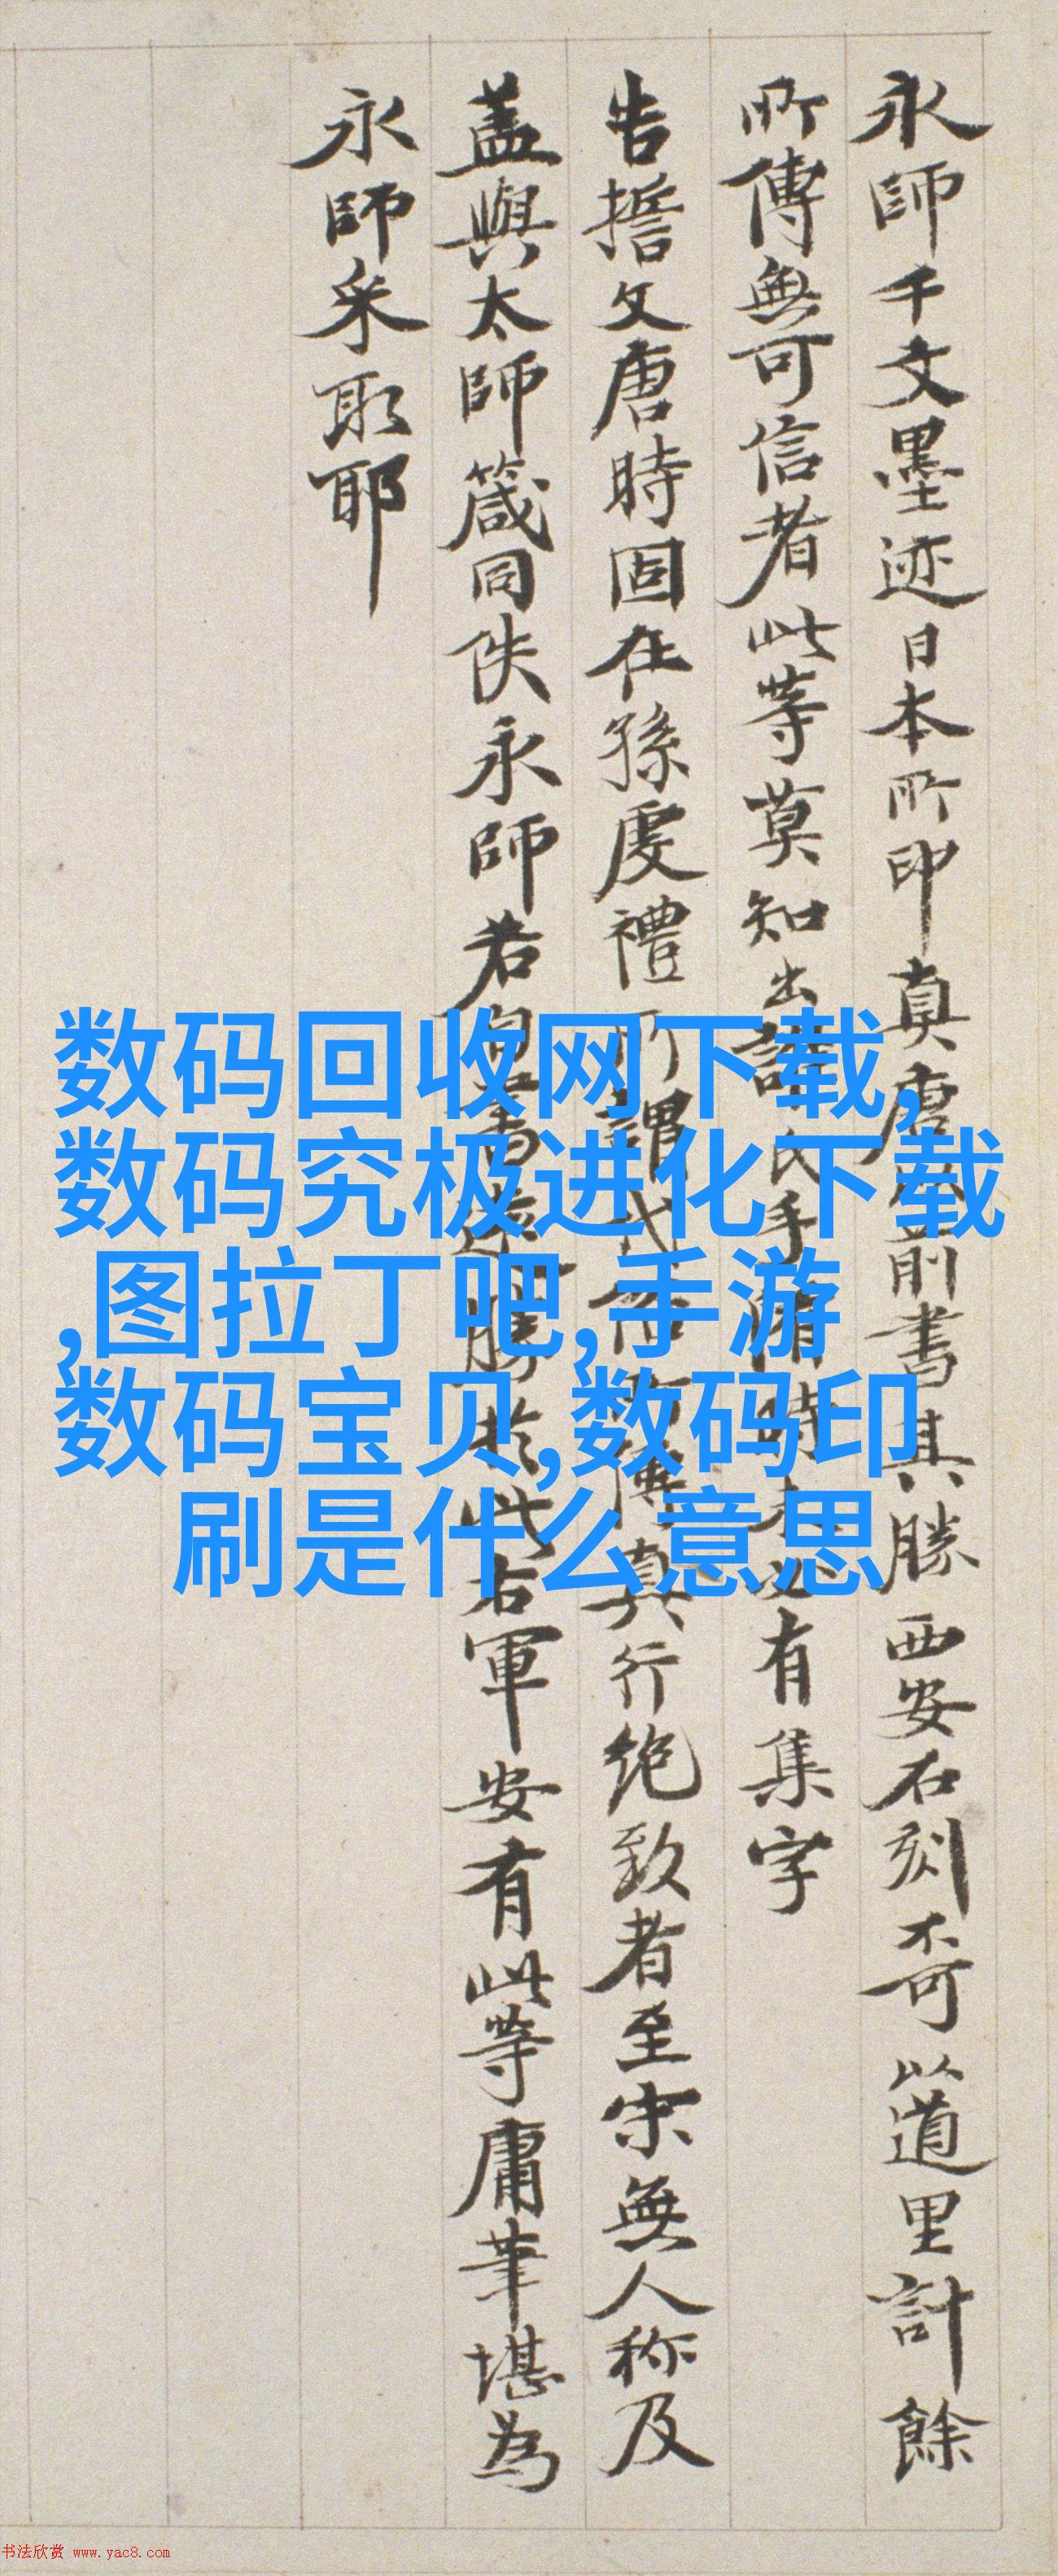 永師千文墨迹日本所印真唐前書其勝西安石刻奇以道里計餘
所傳無可信者此等莫知出誰氏手隋時未必有集字
告誓文唐時固在孫虔禮所謂代俗所傳真行绝致者至宋無人称及
盖與太師箴同佚永師若自書勝於此右軍安有此等庸筆堪為
永師采取耶
数码回收网下载,
数码究极进化下载
,图拉丁吧,手游
数码宝贝,数码印
刷是什么意思
书法欣赏 www.yac8.com